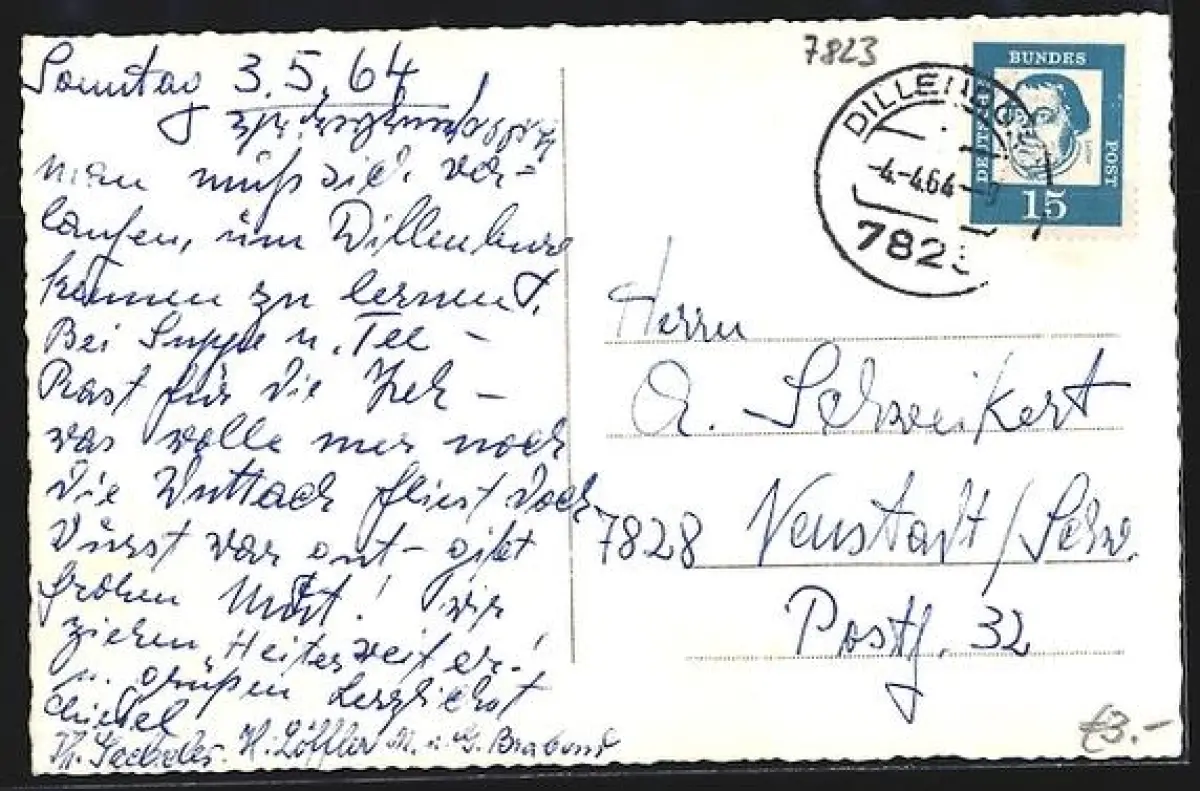 Sonntag 3.5.64
man muß sich ver-
laufen, um Dillenburg
kennen zu lernen!
Bei Suppe u. Tee –
Rast für die
was wolle mer noch
die Wuttach fliest doch
Durst war gut – gibt
frohen Mut! Wir
ziehen "Heiter weiter"!
u. grüßen herzlichst
H. Löffler
7823
DILLENDORF
-4.-4.64-
782
DEUTSCHE
BUNDES
POST
15
Herrn
A. Schweikert
7828 Neustadt/Schw.
Postf. 32
€3.-